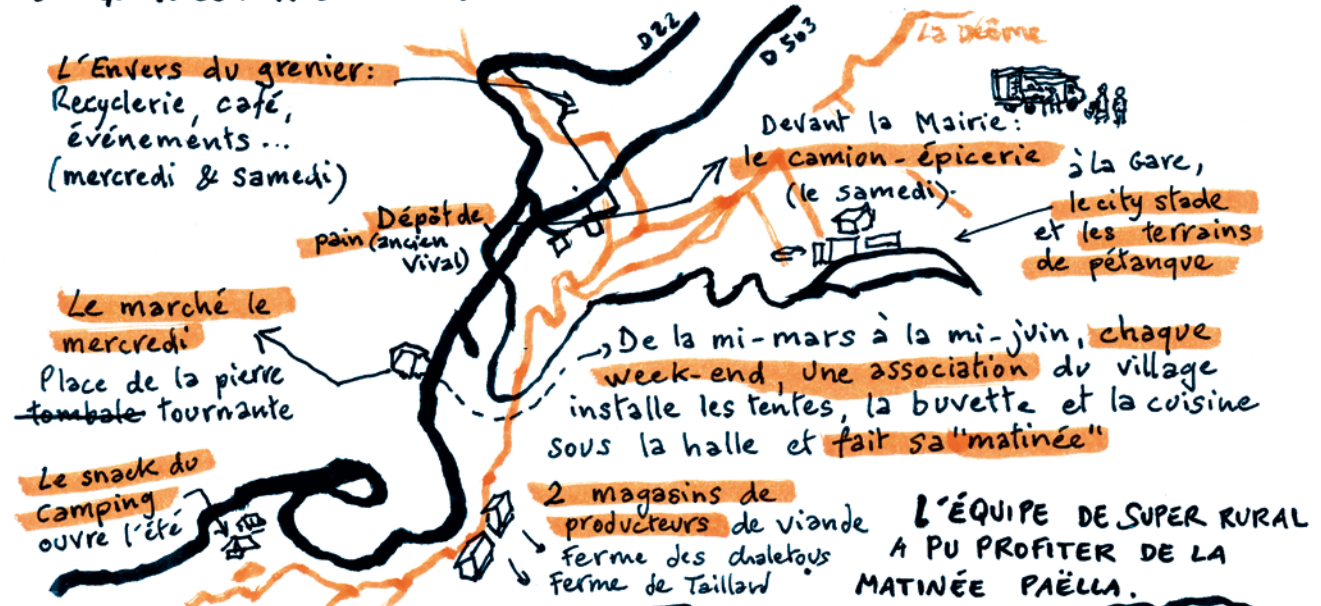 D22
D503
La Déôme
L'Envers du grenier:
Recyclerie, café,
événements...
(mercredi & samedi)
Devant la Mairie:
le camion-épicerie
(le samedi).
à la Gare,
le city stade
et les terrains
de pétanque
Dépôt de
pain (ancien
Vival)
Le marché le
mercredi
Place de la pierre
tombale tournante
De la mi-mars à la mi-juin, chaque
week-end, une association du village
installe les tentes, la buvette et la cuisine
sous la halle et fait sa "matinée"
Le snack du
camping
ouvre l'été
2 magasins de
producteurs de viande
Ferme des chaletous
Ferme de Taillard
L'ÉQUIPE DE SUPER RURAL
A PU PROFITER DE LA
MATINÉE PAËLLA.